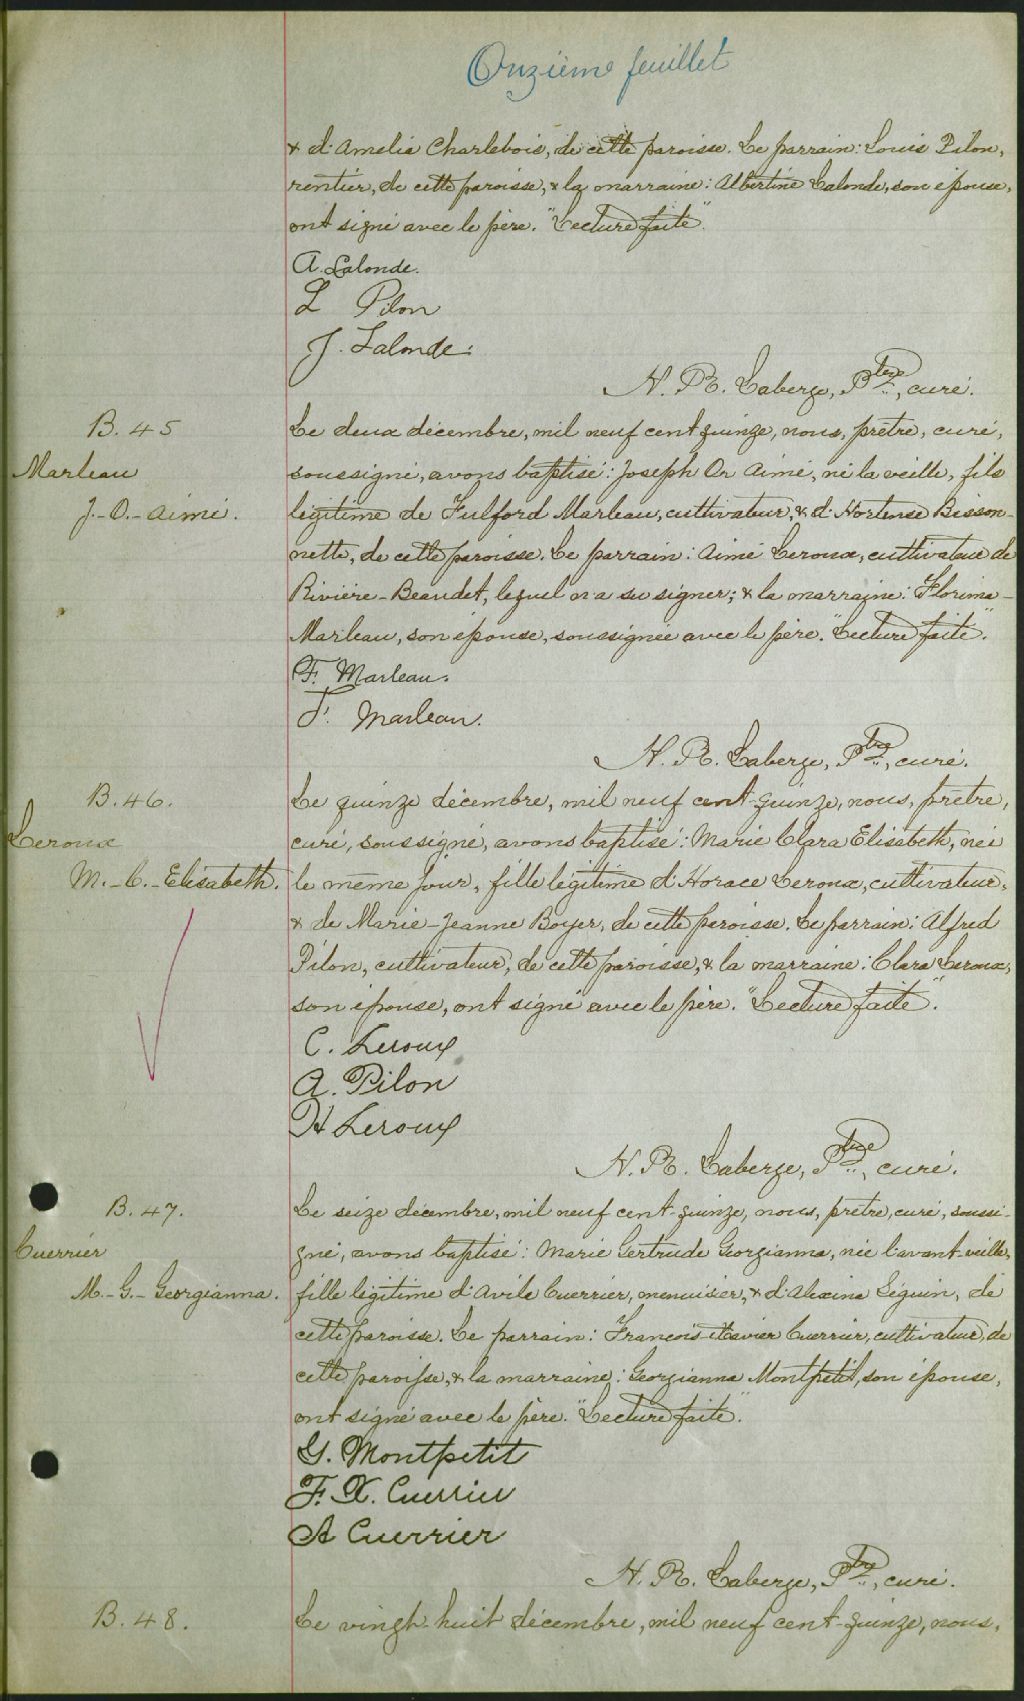 Onzième feuillet
& d'Amelia Charlebois, de cette paroisse. Le parrain: Louis Pilon,
rentier, de cette paroisse, & la marraine: Albertine Lalonde, son épouse,
ont signé avec le père. "Lecture faite".
A. Lalonde.
L Pilon
J. Lalonde.
N. R. Laberge, Ptre, curé.
B. 45
Marleau
J.-O.-Aimé.
Le deux décembre, mil neuf cent quinze, nous, prêtre, curé,
soussigné, avons baptisé: Joseph Or Aimé, né la veille, fils
légitime de Fulford Marleau, cultivateur, & d'Hortense Bisson-
nette, de cette paroisse. Le parrain: Aimé Leroux, cultivateur de
Rivière-Beaudet, lequel n'a su signer; & la marraine: Florima-
Marleau, son épouse, soussignée avec le père. "Lecture faite".
F. Marleau.
F. Marleau.
N. R. Laberge, Ptre, curé.
B. 46.
Leroux
M.-C.-Elisabeth.
Le quinze décembre, mil neuf cent-quinze, nous, prêtre,
curé, soussigné, avons baptisé: Marie Clara Elisabeth, née
le même jour, fille légitime d'Horace Leroux, cultivateur,
& de Marie-Jeanne Boyer, de cette paroisse. Le parrain: Alfred
Pilon, cultivateur, de cette paroisse, & la marraine: Clara Leroux,
son épouse, ont signé avec le père. "Lecture faite".
C. Leroux
A. Pilon
H Leroux
N. R. Laberge, Ptre, curé.
B. 47.
Cuerrier
M.-G.-Georgianna.
Le seize décembre, mil neuf cent-quinze, nous, prêtre, curé, soussi-
gné, avons baptisé: Marie Gertrude Georgianna, née l'avant-veille,
fille légitime d'Avila Cuerrier, menuisier, & d'Alexina Séguin, de
cette paroisse. Le parrain: François-Xavier Cuerrier, cultivateur, de
cette paroisse, & la marraine: Georgianna Montpetit, son épouse,
ont signé avec le père. "Lecture faite".
G. Montpetit
F. X. Cuerrier
A Cuerrier
N. R. Laberge, Ptre, curé.
B. 48.
Le vingt-huit décembre, mil neuf cent-quinze, nous,